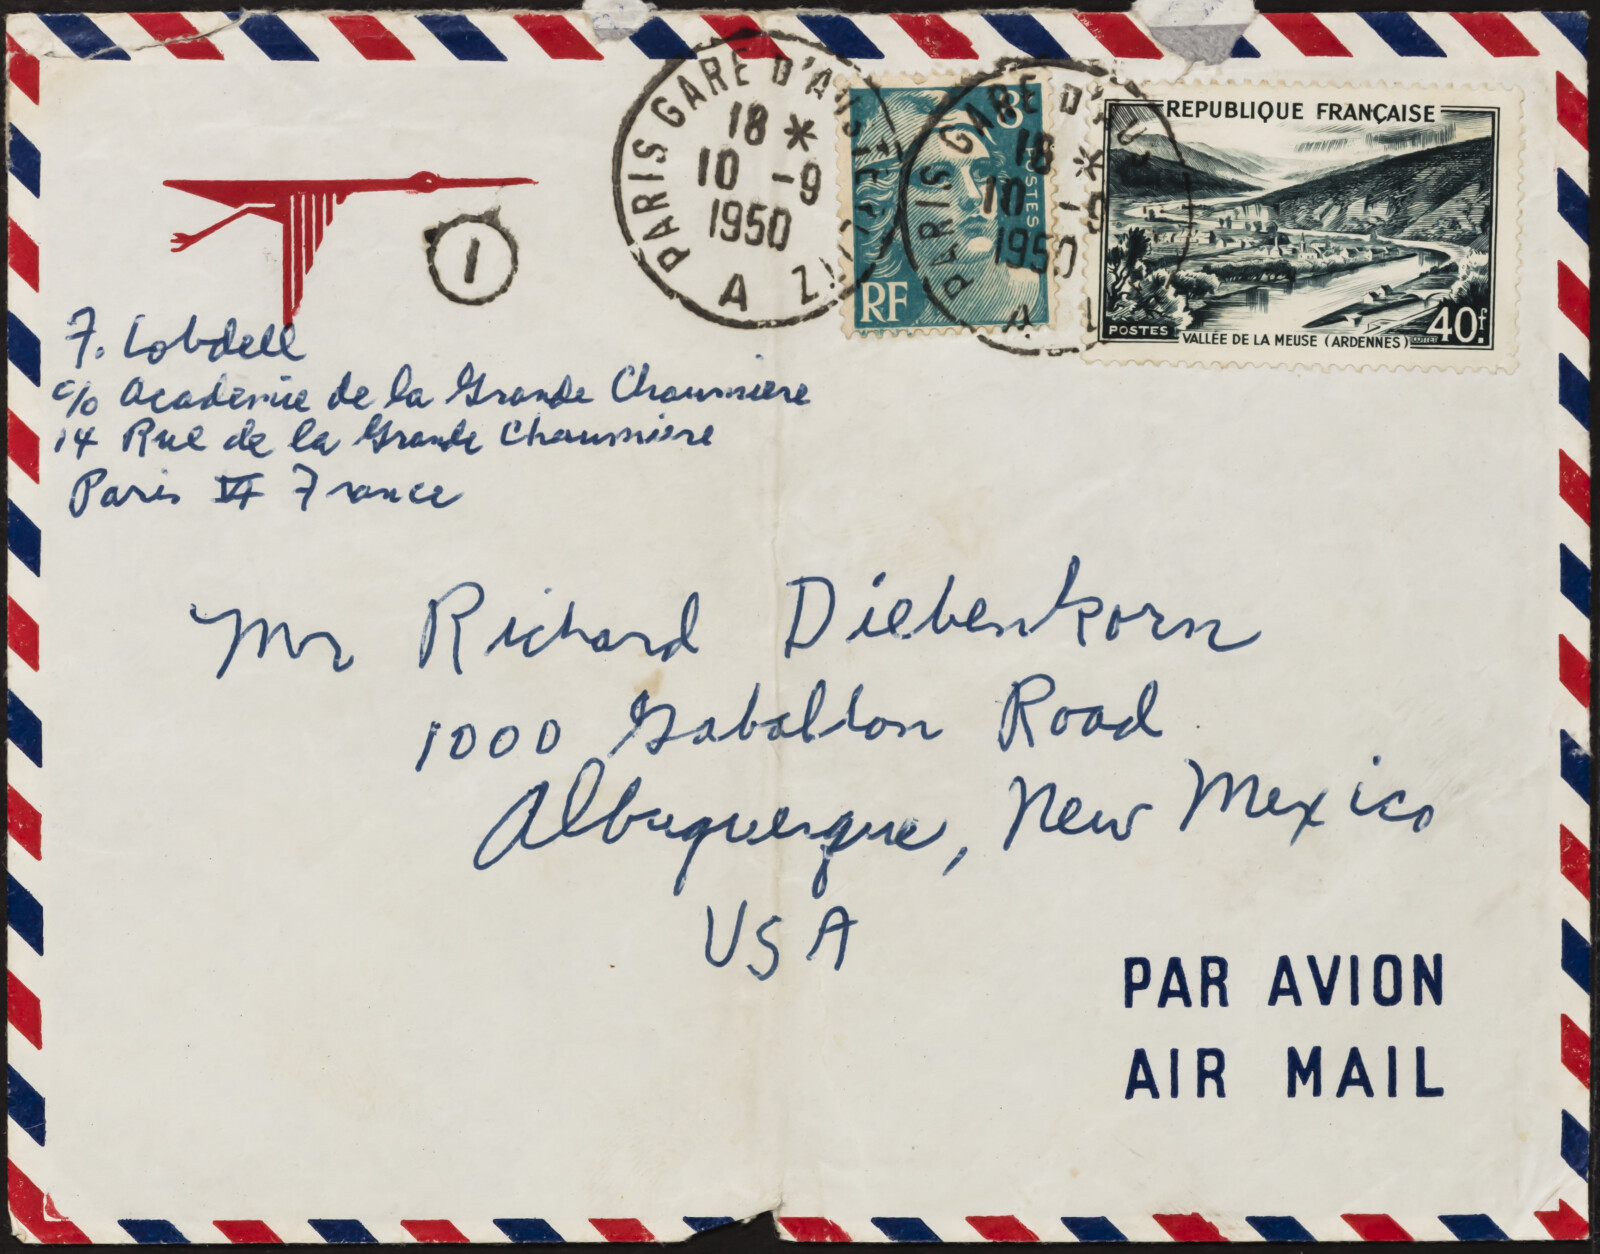 PARIS GARE D'AUSTERLITZ
18 *
10 -9
1950
A
8
POSTES
RF
PARIS GARE D'AU
18 *
10 -9
1950
A
REPUBLIQUE FRANÇAISE
POSTES
VALLÉE DE LA MEUSE (ARDENNES)
40f
1
F. Lobdell
c/o Academie de la Grande Chaumiere
14 Rue de la Grande Chaumiere
Paris VI France
Mr Richard Diebenkorn
1000 Gabaldon Road
Albuquerque, New Mexico
USA
PAR AVION
AIR MAIL